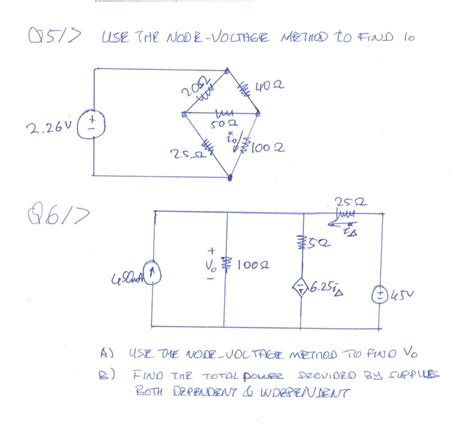 Q5/> USE THE NODE-VOLTAGE METHOD TO FIND io
20Ω
40Ω
50Ω
2.26V
io
25Ω
100Ω
Q6/>
25Ω
iΔ
5Ω
+
Vo
-
100Ω
450mA
6.25iΔ
45V
A) USE THE NODE-VOLTAGE METHOD TO FIND Vo
B) FIND THE TOTAL POWER PROVIDED BY SUPPLIES
BOTH DEPENDENT & INDEPENDENT